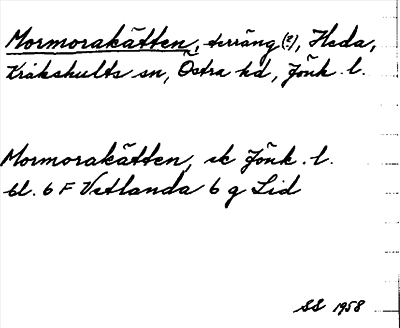 Mormorakätten, terräng(?), Heda,
Kråkshults sn, Östra hd, Jönk. l.
Mormorakätten, ek Jönk. l.
bl. 6 F Vetlanda 6 g Lid
SS 1958